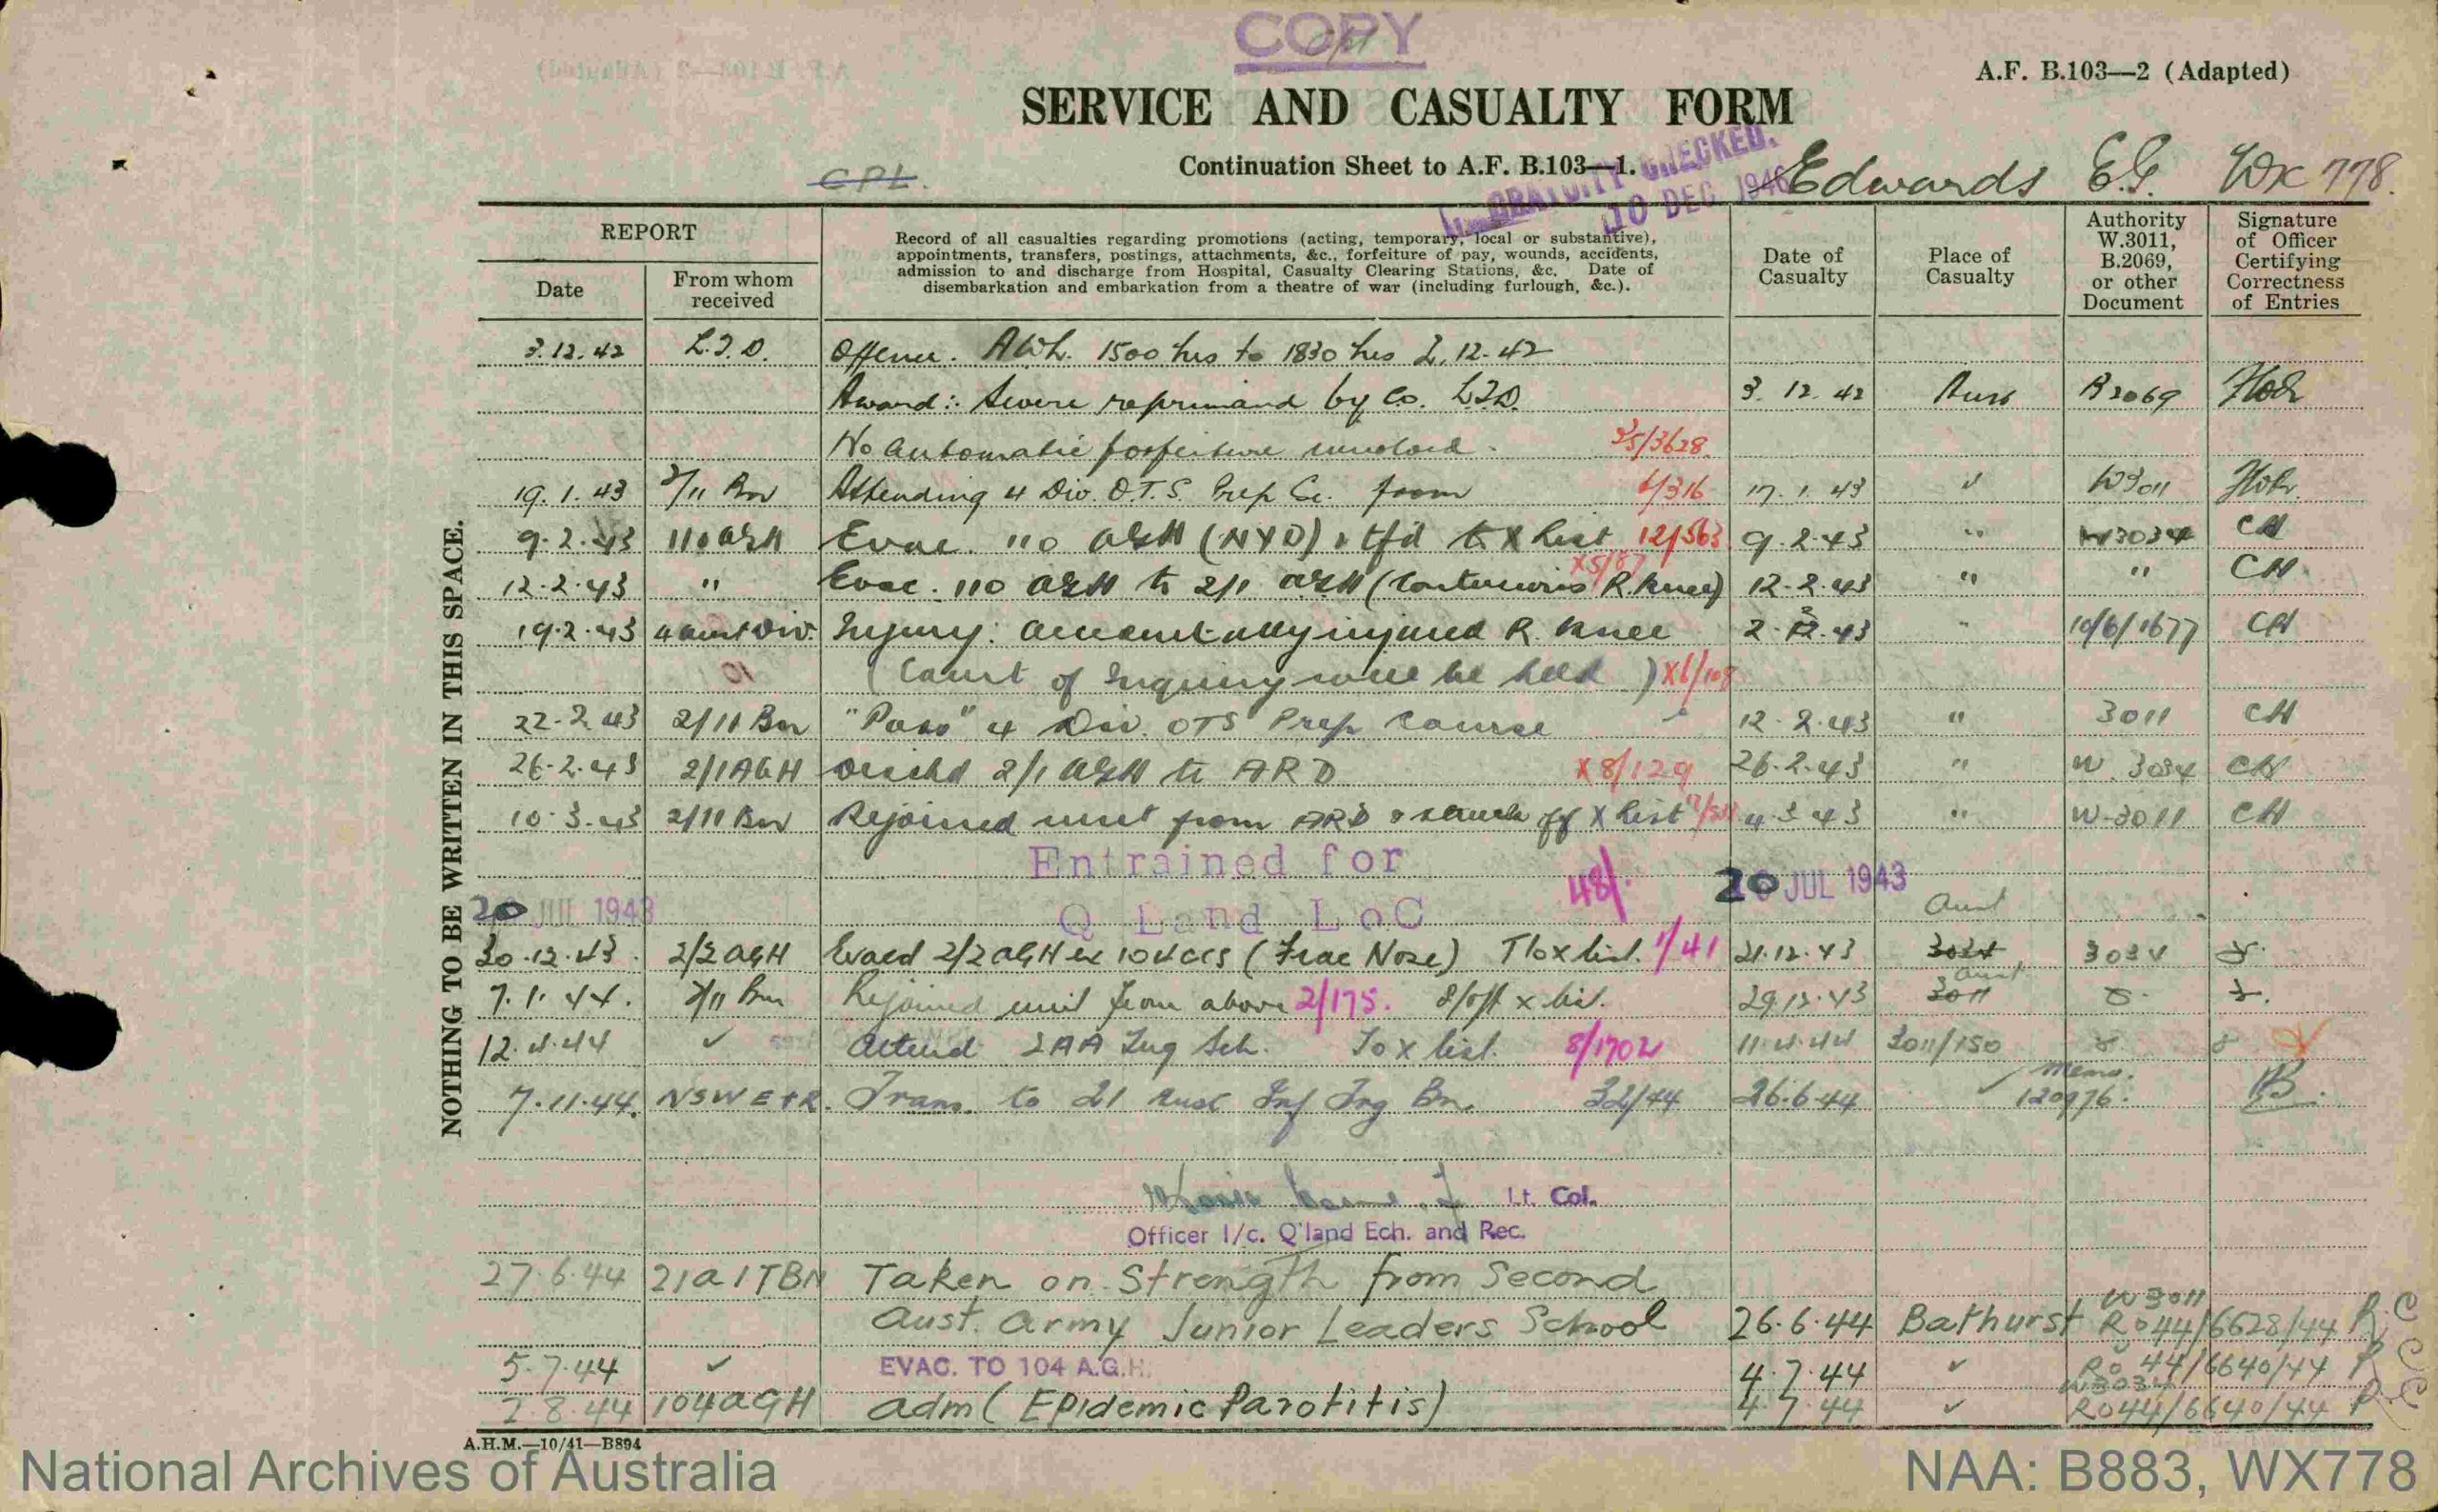 COPY
A.F. B.103—2 (Adapted)
SERVICE AND CASUALTY FORM
Continuation Sheet to A.F. B.103—1.
GRATUITY CHECKED.
10 DEC 1946
CPL.
Edwards E.G. WX 778.
REPORT
Date
From whom received
Record of all casualties regarding promotions (acting, temporary, local or substantive),
appointments, transfers, postings, attachments, &c., forfeiture of pay, wounds, accidents,
admission to and discharge from Hospital, Casualty Clearing Stations, &c. Date of
disembarkation and embarkation from a theatre of war (including furlough, &c.).
Date of Casualty
Place of Casualty
Authority W.3011, B.2069, or other Document
Signature of Officer Certifying Correctness of Entries
NOTHING TO BE WRITTEN IN THIS SPACE.
3.12.42 L.T.D. Offence. AWL. 1500 hrs to 1830 hrs 2.12.42
Award: Severe reprimand by Co. LTD. 3.12.42 Aust B2069
No automatic forfeiture involved. 35/3628.
19.1.43 2/11 Bn Attending 4 Div. O.T.S. Prep Co. from 6/316 17.1.43 W3011
9.2.43 110 AGH Evac. 110 AGH (NYD) & tfd to X list 12/563 9.2.43 " W3034 CH
12.2.43 " Evac. 110 AGH to 2/1 AGH (Contusions R. Knee) X5/87 12.2.43 " " CH
19.2.43 4 Aust Div. Injury: accidentally injured R. Knee 2.2.43 " 10/6/1677 CH
(Court of Inquiry will be held) X6/108
22.2.43 2/11 Bn "Pass" 4 Div. OTS Prep Course 12.2.43 " 3011 CH
26.2.43 2/1 AGH Dischd 2/1 AGH to ARD X8/129 26.2.43 " W.3034 CH
10.3.43 2/11 Bn Rejoined unit from ARD & struck off X list 4.3.43 " W-3011 CH
Entrained for
20 JUL 1943 Q Land LoC 48/. 20 JUL 1943 Aust
30.12.43. 2/2 AGH Evacd 2/2 AGH ex 104 CCS (Frac Nose) T to x list. 1/41 21.12.43 3034 3034
7.1.44. 2/11 Bn Rejoined unit from above 2/175. S/off x list. 29.12.43 3011 Aust
12.4.44 Attend LAA Trg Sch. To x list. 8/1702 11.4.44 3011/150
7.11.44. NSW E & R. Trans. to 21 Aust Inf Trg Bn. 32/44 26.6.44 Memo. 120976.
Lt. Col.
Officer I/c. Q'land Ech. and Rec.
27.6.44 21 A I T BN Taken on Strength from Second
Aust. Army Junior Leaders School 26.6.44 Bathurst W3011 Ro44/6628/44 R.C
5.7.44 EVAC. TO 104 A.G.H. 4.7.44 Ro 44/6640/44 RC
2.8.44 104 AGH adm (Epidemic Parotitis) 4.7.44 W3034 Ro44/6640/44 RC
A.H.M.—10/41—B894
National Archives of Australia
NAA: B883, WX778